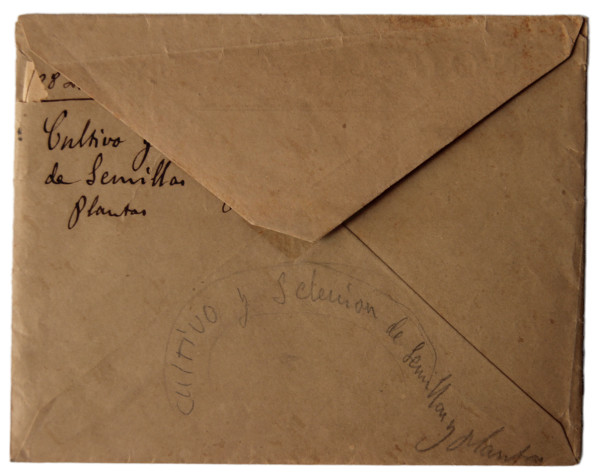 Cultivo y
de Semillas
Plantas
Cultivo y Selecion de Semillas y Plantas